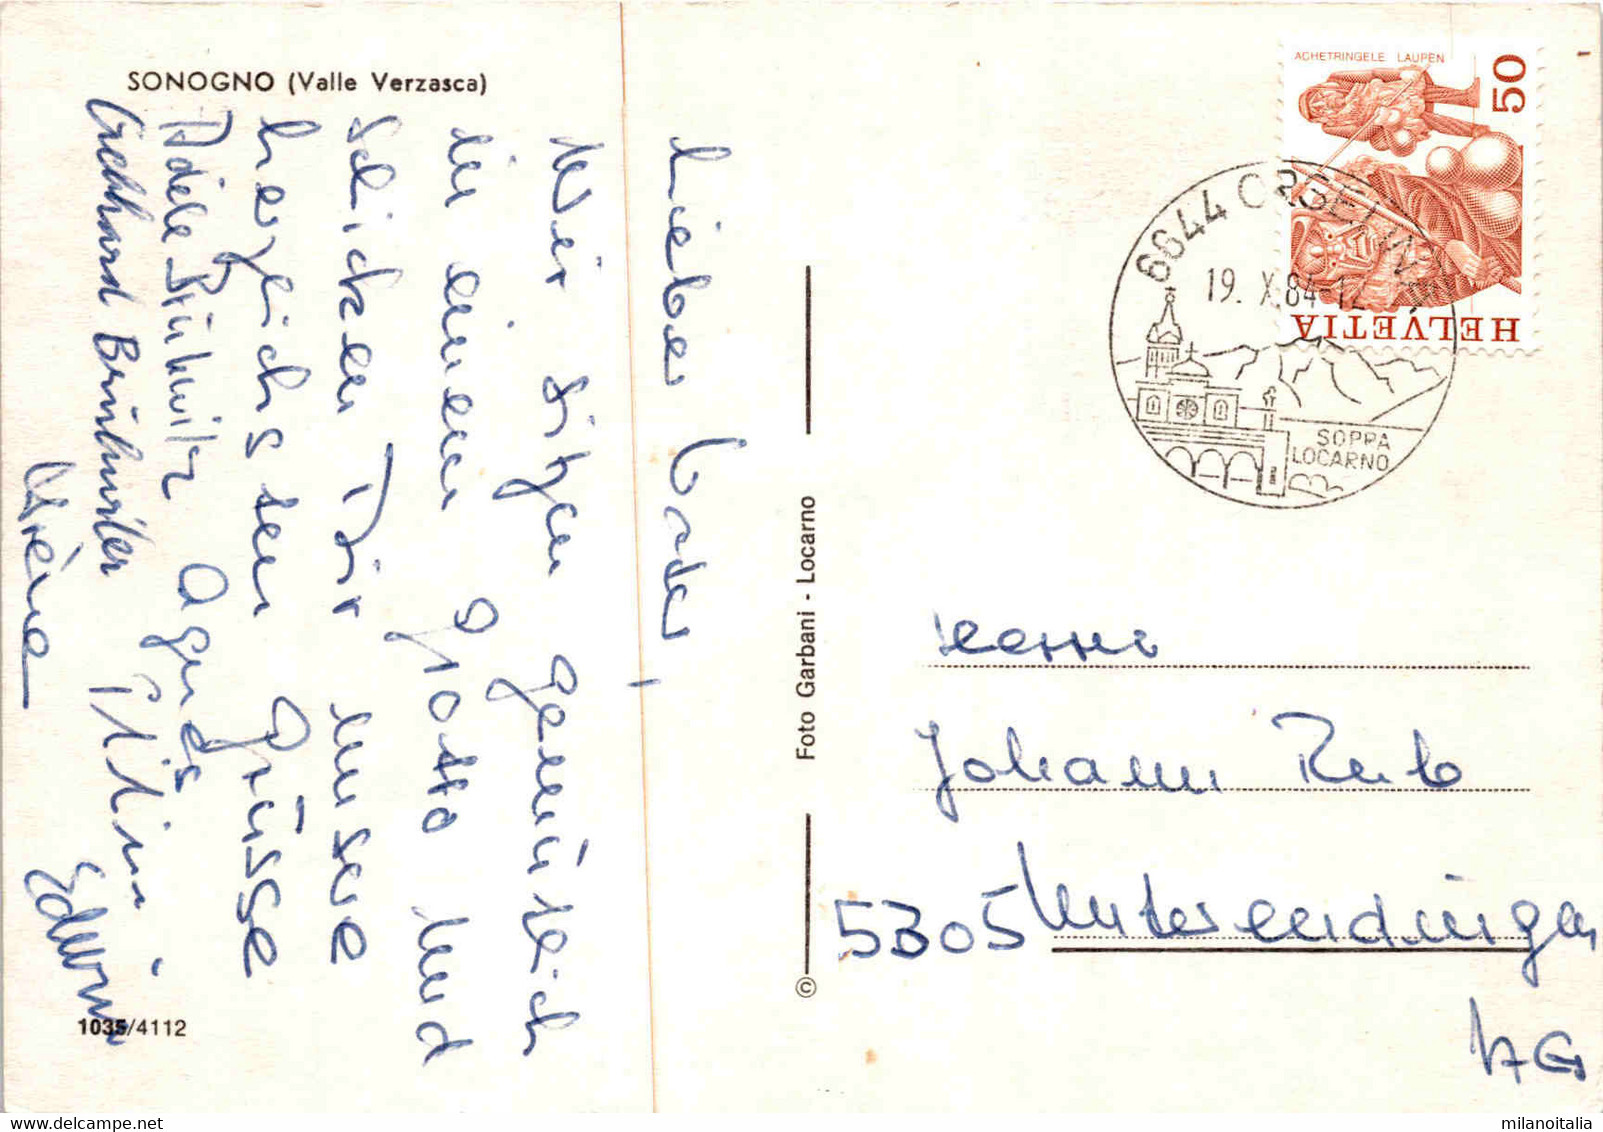 SONOGNO (Valle Verzasca)
Wir sitzen gemütlich
in einem Grotto und
schicken Dir unsere
herzlichsten Grüsse
Adele
Agnes
Gebhard
Edwin
1035/4112
© Foto Garbani - Locarno
ACHETRINGELE LAUPEN
50
HELVETIA
6644 ORSELINA
19. X. 84-12
SOPRA
LOCARNO
Herrn
Johann Rub
5305 Unterendingen
AG
milanoitalia